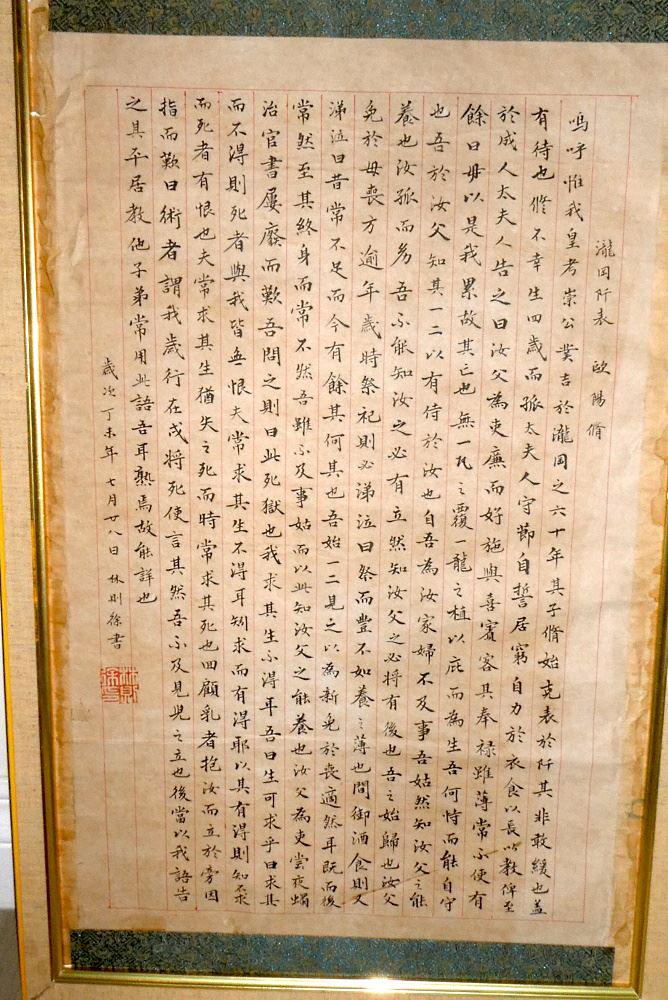 瀧岡阡表 歐陽脩
嗚呼惟我皇考崇公吉於瀧岡之六十年其子脩始克表於阡其非敢緩也蓋
有待也脩不幸生四歲而孤太夫人守節自誓居窮自力於衣食以長以教俾至
於成人太夫人告之曰汝父為吏廉而好施與喜賓客其奉祿雖薄常不使有
餘曰毋以是我累故其亡也無一瓦之覆一龍之植以庇而為生吾何恃而能自守
也吾於汝父知其一二以有待於汝也自吾為汝家婦不及事吾姑然知汝父之能
養也汝孤而幼吾不能知汝之必有立然知汝父之必將有後也吾之始歸也汝父
免於母喪方逾年歲時祭祀則必涕泣曰祭而豐不如養之薄也間御酒食則又
涕泣曰昔常不足而今有餘其何其也吾始一二見之以為新免於喪適然耳既而後
常然至其終身而常不然吾雖不及事姑而以此知汝父之能養也汝父為吏嘗夜燭
治官書屢廢而歎吾問之則曰此死獄也我求其生不得耳吾曰生可求乎曰求其
而不得則死者與我皆無恨夫常求其生不得耳矧求而有得耶以其有得則知不求
而死者有恨也夫常求其生猶失之死而時常求其死也回顧乳者抱汝而立於旁因
指而歎曰術者謂我歲行在戌將死使言其然吾不及見兒之立也後當以我語告
之其平居教他子弟常用此語吾耳熟焉故能詳也
歲次丁未年七月廿八日 林則徐書
林則徐印